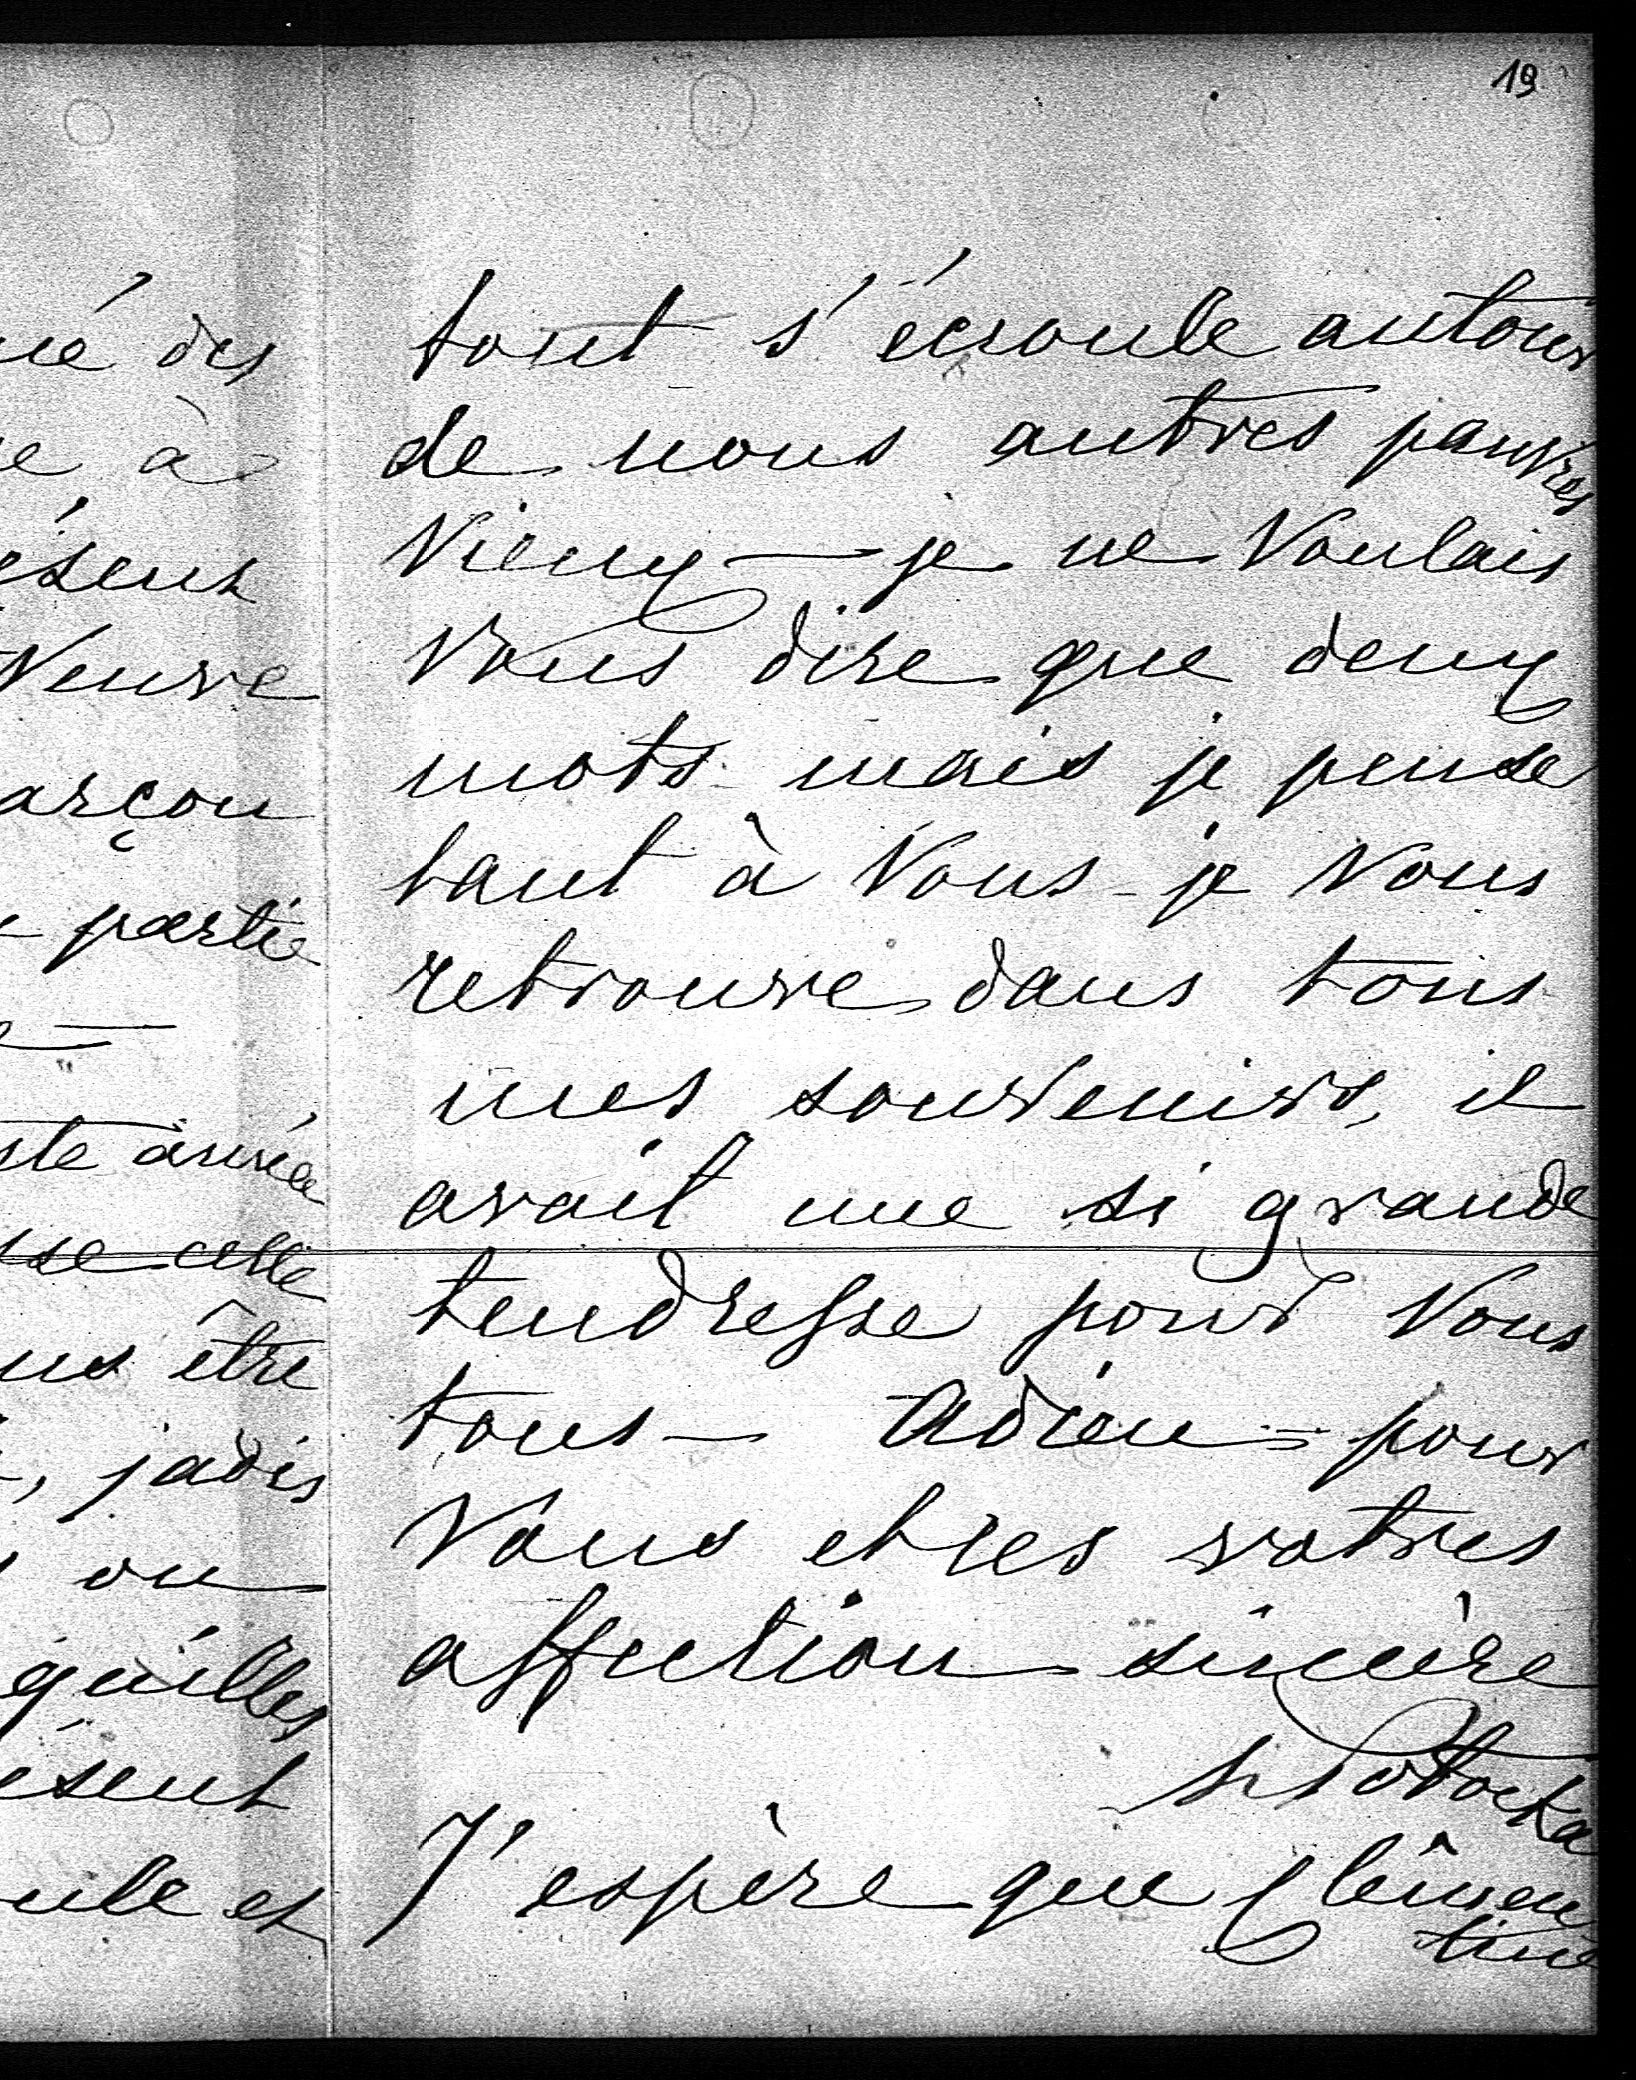 19
né des
e à
ésent
Veuve
arçon
partie
ste arrivée
sse celle
us être
, jadis
ou
quilles
ésent
ule et
tout s'écroule autour
de nous autres pauvres
Vieux — je ne Voulais
Vous dire que deux
mots mais je pense
tant à Vous - je Vous
retrouve dans tous
mes souvenirs, il
avait une si grande
tendresse pour Vous
tous — Adieu = pour
Vous et les votres
affection sincère
Potocka
J'espère que Clémen
tine